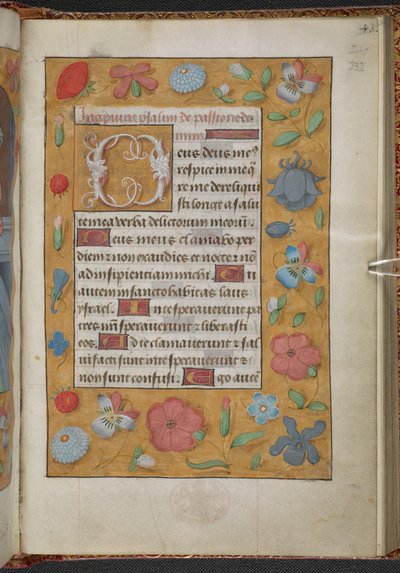 Incipiunt psalmi de passione do
mini.
Deus deus meus
respice in me q̄
re me dereliqui
sti longe a salu
te mea verba delictorum meoru᷒.
Deus meus clamabo per
diem et non exaudies et nocte et nō
ad insipientiam michi. Tu
autem in sancto habitas laus
ysrael. In te speraverunt pa
tres nr̄i speraverunt et liberasti
eos. Ad te clamaverunt et sal
vi facti sunt in te speraverunt et
non sunt confusi. Ego autē
232